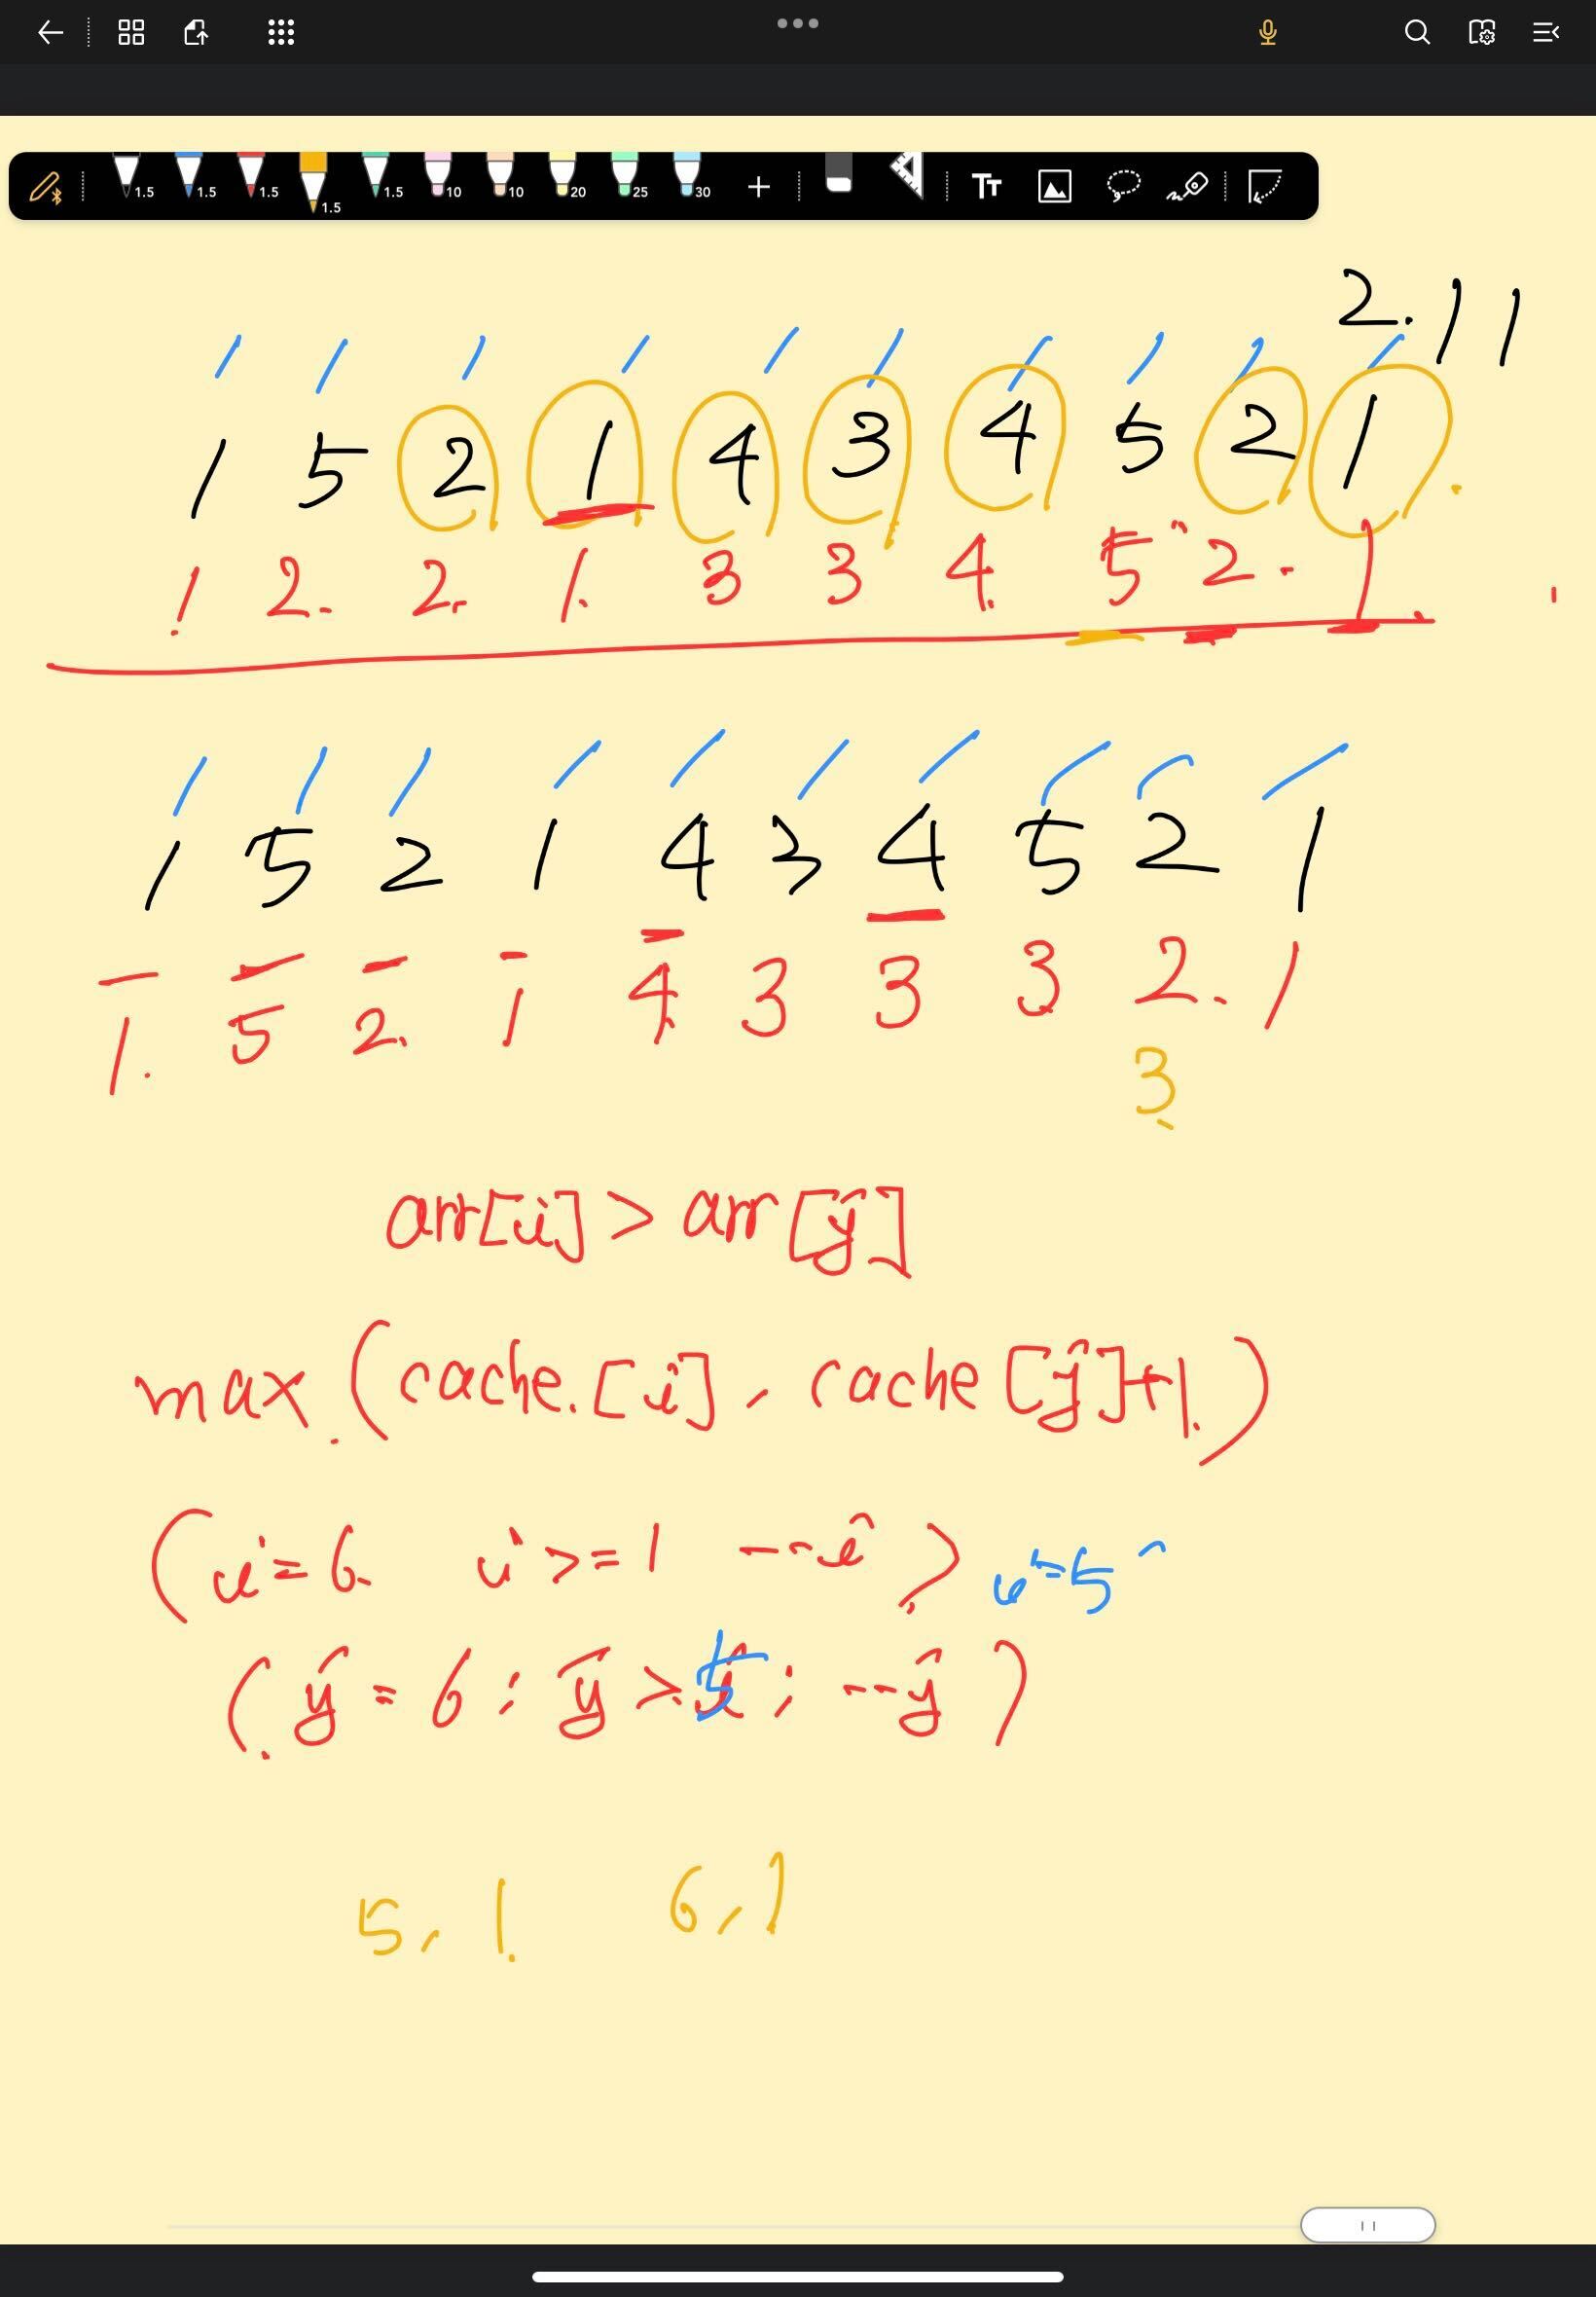 1.5 1.5 1.5 1.5 1.5 10 10 20 25 30 Tт
2.11
1 5 2 1 4 3 4 5 2 1
1. 2. 2. 1. 3 3 4. 5 2. 1.
1 5 2 1 4 3 4 5 2 1
1. 5 2. 1 4. 3 3 3 2. 1
3
arr[i] > arr[j]
max(cache.[i], cache[j]+1.)
(i=6. i>=1 --i) i=5
(j=6; j>5; --j)
5, 1. 6, 1